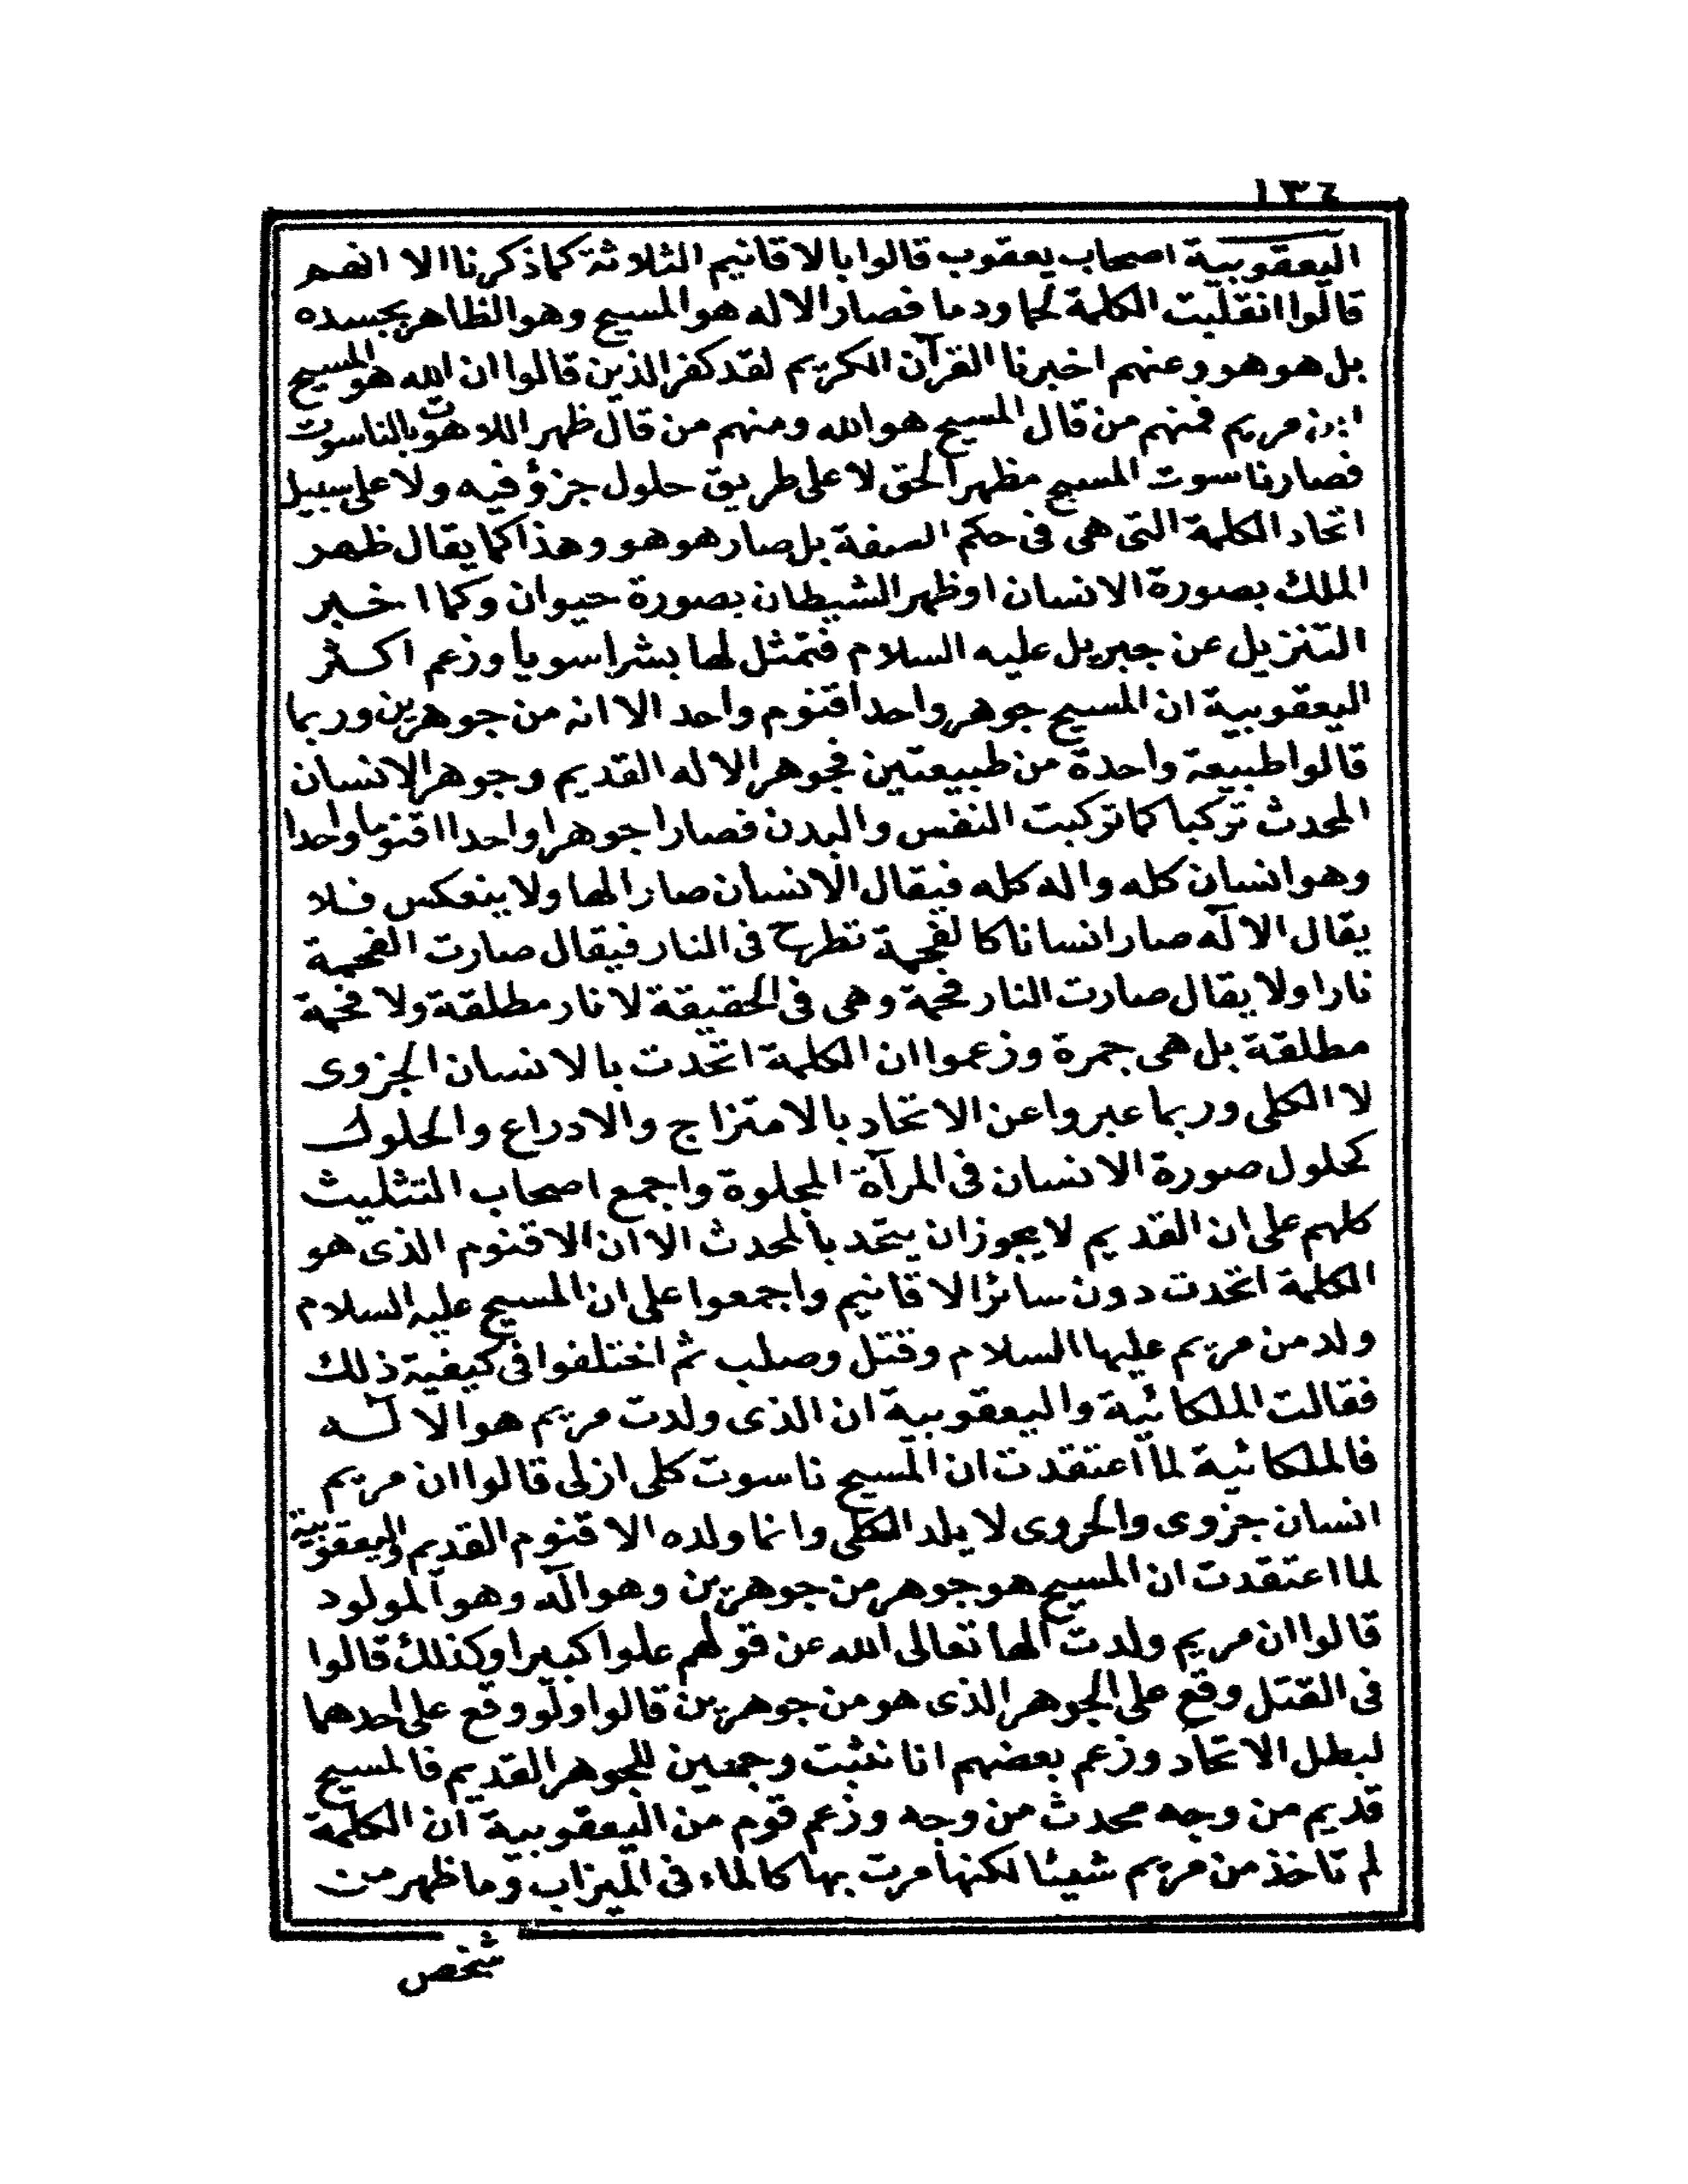 ١٣٤
اليعقوبية اصحاب يعقوب قالوا بالاقانيم الثلاثة كما ذكرنا الا انهم
قالوا انقلبت الكلمة لحما ودما فصار الاله هو المسيح وهو الظاهر بجسده
بل هو هو وعنهم اخبرنا القرآن الكريم لقد كفر الذين قالوا ان الله هو المسيح
ابن مريم فمنهم من قال المسيح هو الله ومنهم من قال ظهر اللاهوت بالناسوت
فصار ناسوت المسيح مظهر الحق لا على طريق حلول جزؤ فيه ولا على سبيل
اتحاد الكلمة التى هى فى حكم الصفة بل صار هو هو وهذا كما يقال ظهر
الملك بصورة الانسان او ظهر الشيطان بصورة حيوان وكما اخبر
التنزيل عن جبريل عليه السلام فتمثل لها بشرا سويا وزعم اكثر
اليعقوبية ان المسيح جوهر واحد اقنوم واحد الا انه من جوهرين وربما
قالوا طبيعة واحدة من طبيعتين فجوهر الاله القديم وجوهر الانسان
المحدث تركبا كما تركبت النفس والبدن فصارا جوهرا واحدا اقنوما واحدا
وهو انسان كله واله كله فيقال الانسان صار الها ولا ينعكس فلا
يقال الاله صار انسانا كالفحمة تطرح فى النار فيقال صارت الفحمة
نارا ولا يقال صارت النار فحمة وهى فى الحقيقة لا نار مطلقة ولا فحمة
مطلقة بل هى جمرة وزعموا ان الكلمة اتحدت بالانسان الجزوى
لا الكلى وربما عبروا عن الاتحاد بالامتزاج والادراع والحلول
كحلول صورة الانسان فى المرآة المجلوة واجمع اصحاب التثليث
كلهم على ان القديم لا يجوز ان يتحد بالمحدث الا ان الاقنوم الذى هو
الكلمة اتحدت دون سائر الاقانيم واجمعوا على ان المسيح عليه السلام
ولد من مريم عليها السلام وقتل وصلب ثم اختلفوا فى كيفية ذلك
فقالت الملكائية واليعقوبية ان الذى ولدت مريم هو الاله
فالملكائية لما اعتقدت ان المسيح ناسوت كلى ازلى قالوا ان مريم
انسان جزوى والحروى لا يلد الكلى وانما ولده الاقنوم القديم واليعقوبية
لما اعتقدت ان المسيح هو جوهر من جوهرين وهو اله وهو المولود
قالوا ان مريم ولدت الها تعالى الله عن قولهم علوا كبيرا وكذلك قالوا
فى القتل وقع على الجوهر الذى هو من جوهرين قالوا ولو وقع على احدهما
لبطل الاتحاد وزعم بعضهم انا نثبت وجهين للجوهر القديم فالمسيح
قديم من وجه محدث من وجه وزعم قوم من اليعقوبية ان الكلمة
لم تاخذ من مريم شيئا لكنها مرت بها كالماء فى الميزاب وما ظهر من
شخص